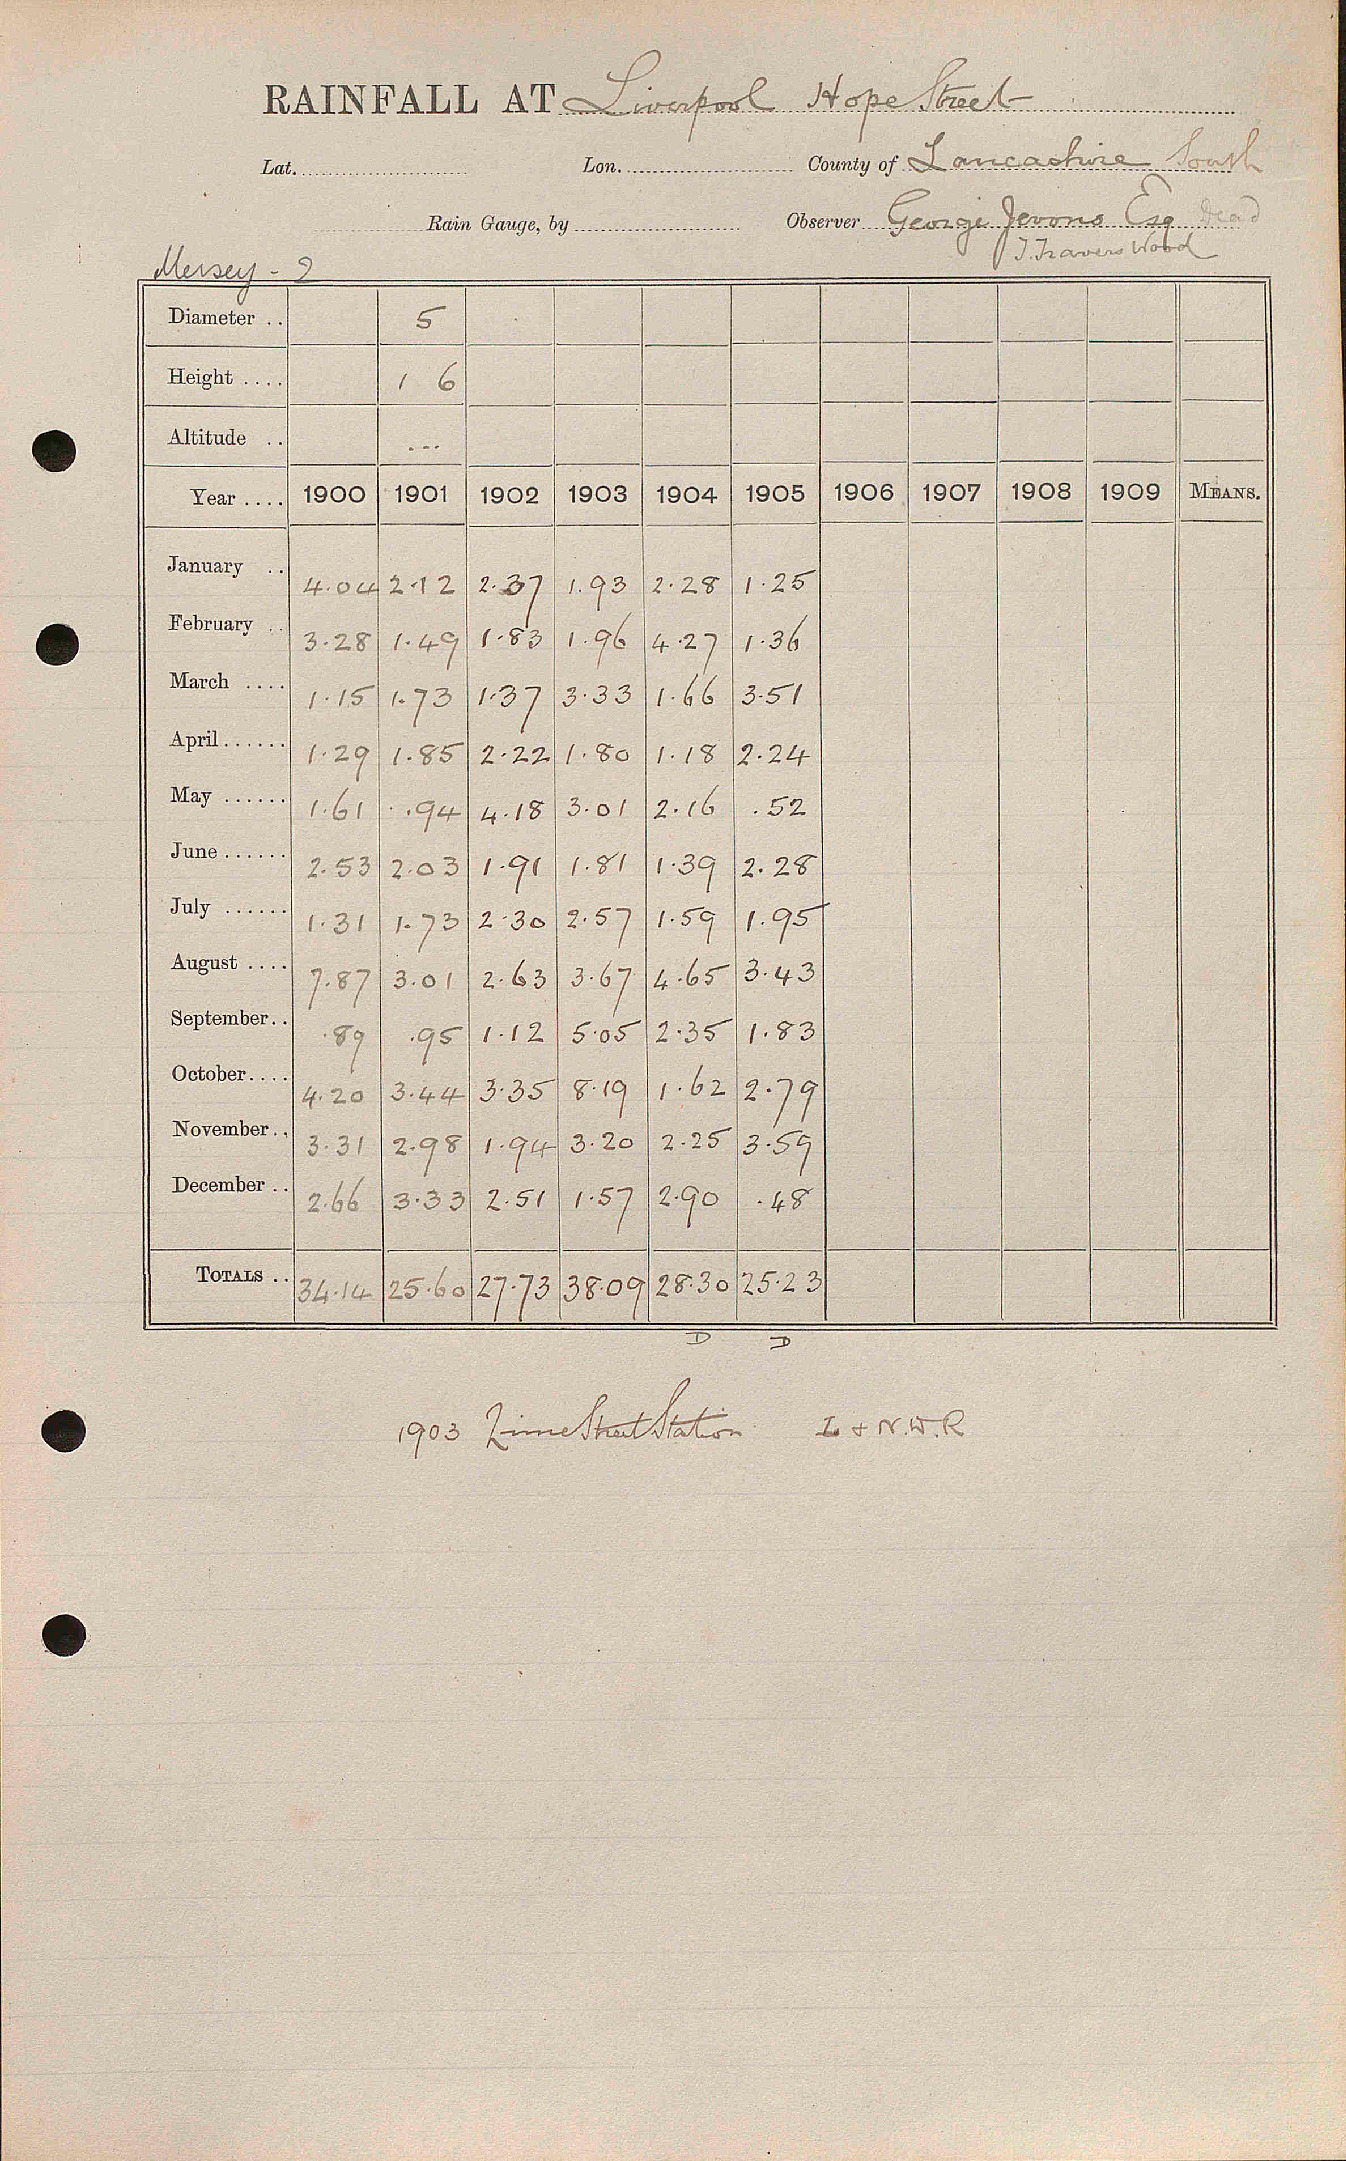 RAINFALL AT Liverpool Hope Street
Lat. Lon. County of Lancashire South
Rain Gauge, by Observer George Jevons Esq Dead
J. Travers Wood
Mersey - 2
Diameter .. 5
Height .... 1 6
Altitude .. ...
Year .... 1900 1901 1902 1903 1904 1905 1906 1907 1908 1909 MEANS.
January .. 4.04 2.12 2.37 1.93 2.28 1.25
February .. 3.28 1.49 1.83 1.96 4.27 1.36
March .... 1.15 1.73 1.37 3.33 1.66 3.51
April...... 1.29 1.85 2.22 1.80 1.18 2.24
May ...... 1.61 .94 4.18 3.01 2.16 .52
June...... 2.53 2.03 1.91 1.81 1.39 2.28
July ...... 1.31 1.73 2.30 2.57 1.59 1.95
August .... 7.87 3.01 2.63 3.67 4.65 3.43
September.. .89 .95 1.12 5.05 2.35 1.83
October.... 4.20 3.44 3.35 8.19 1.62 2.79
November.. 3.31 2.98 1.94 3.20 2.25 3.59
December .. 2.66 3.33 2.51 1.57 2.90 .48
TOTALS .. 34.14 25.60 27.73 38.09 28.30 25.23
D D
1903 Lime Street Station L & N.W.R